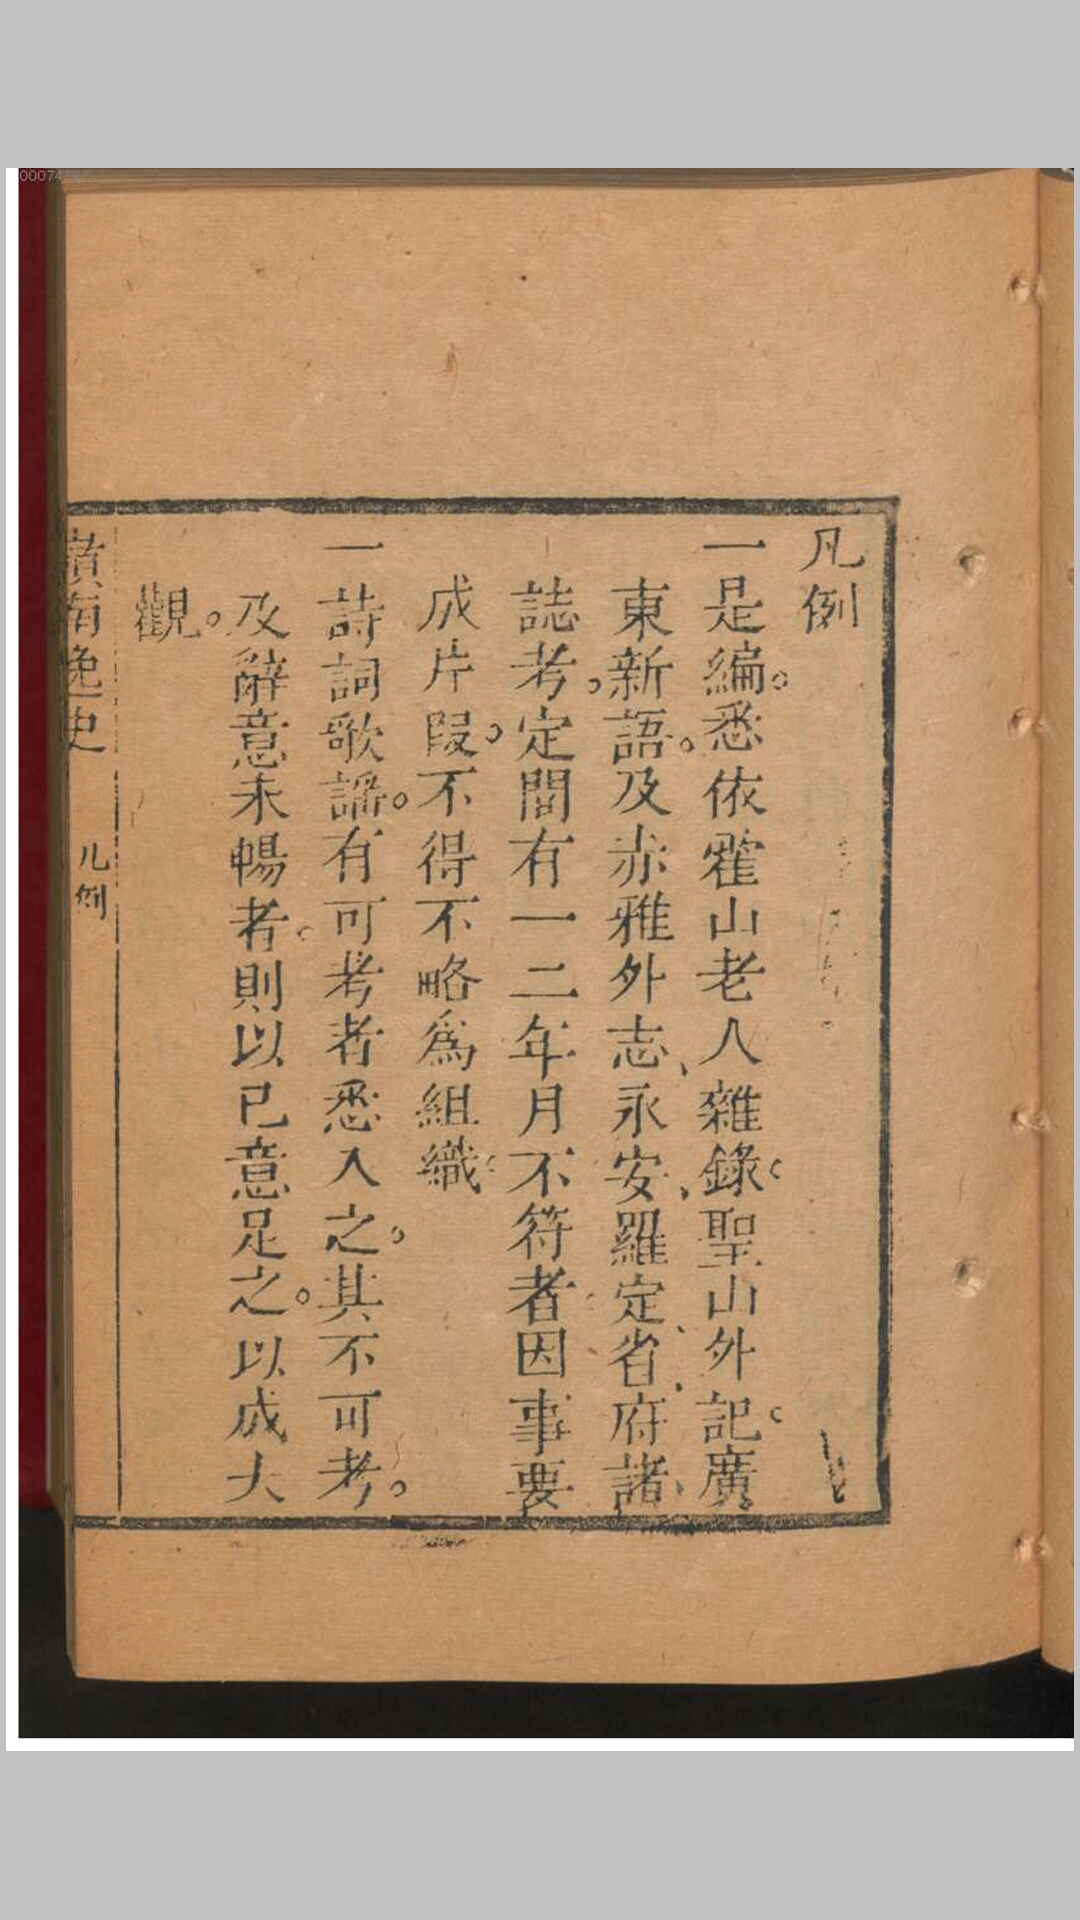 凡例
一是編。悉依霍山老人雜錄。聖山外記。廣
東新語。及赤雅外志、永安、羅定、省、府諸、
誌考。定間有一二年月不符者。因事要
成片段。不得不略為組織。
一詩詞歌謡。有可考者悉入之。其不可考。
及辭意未暢者。則以已意足之。以成大
觀。
嶺南逸史
凡例